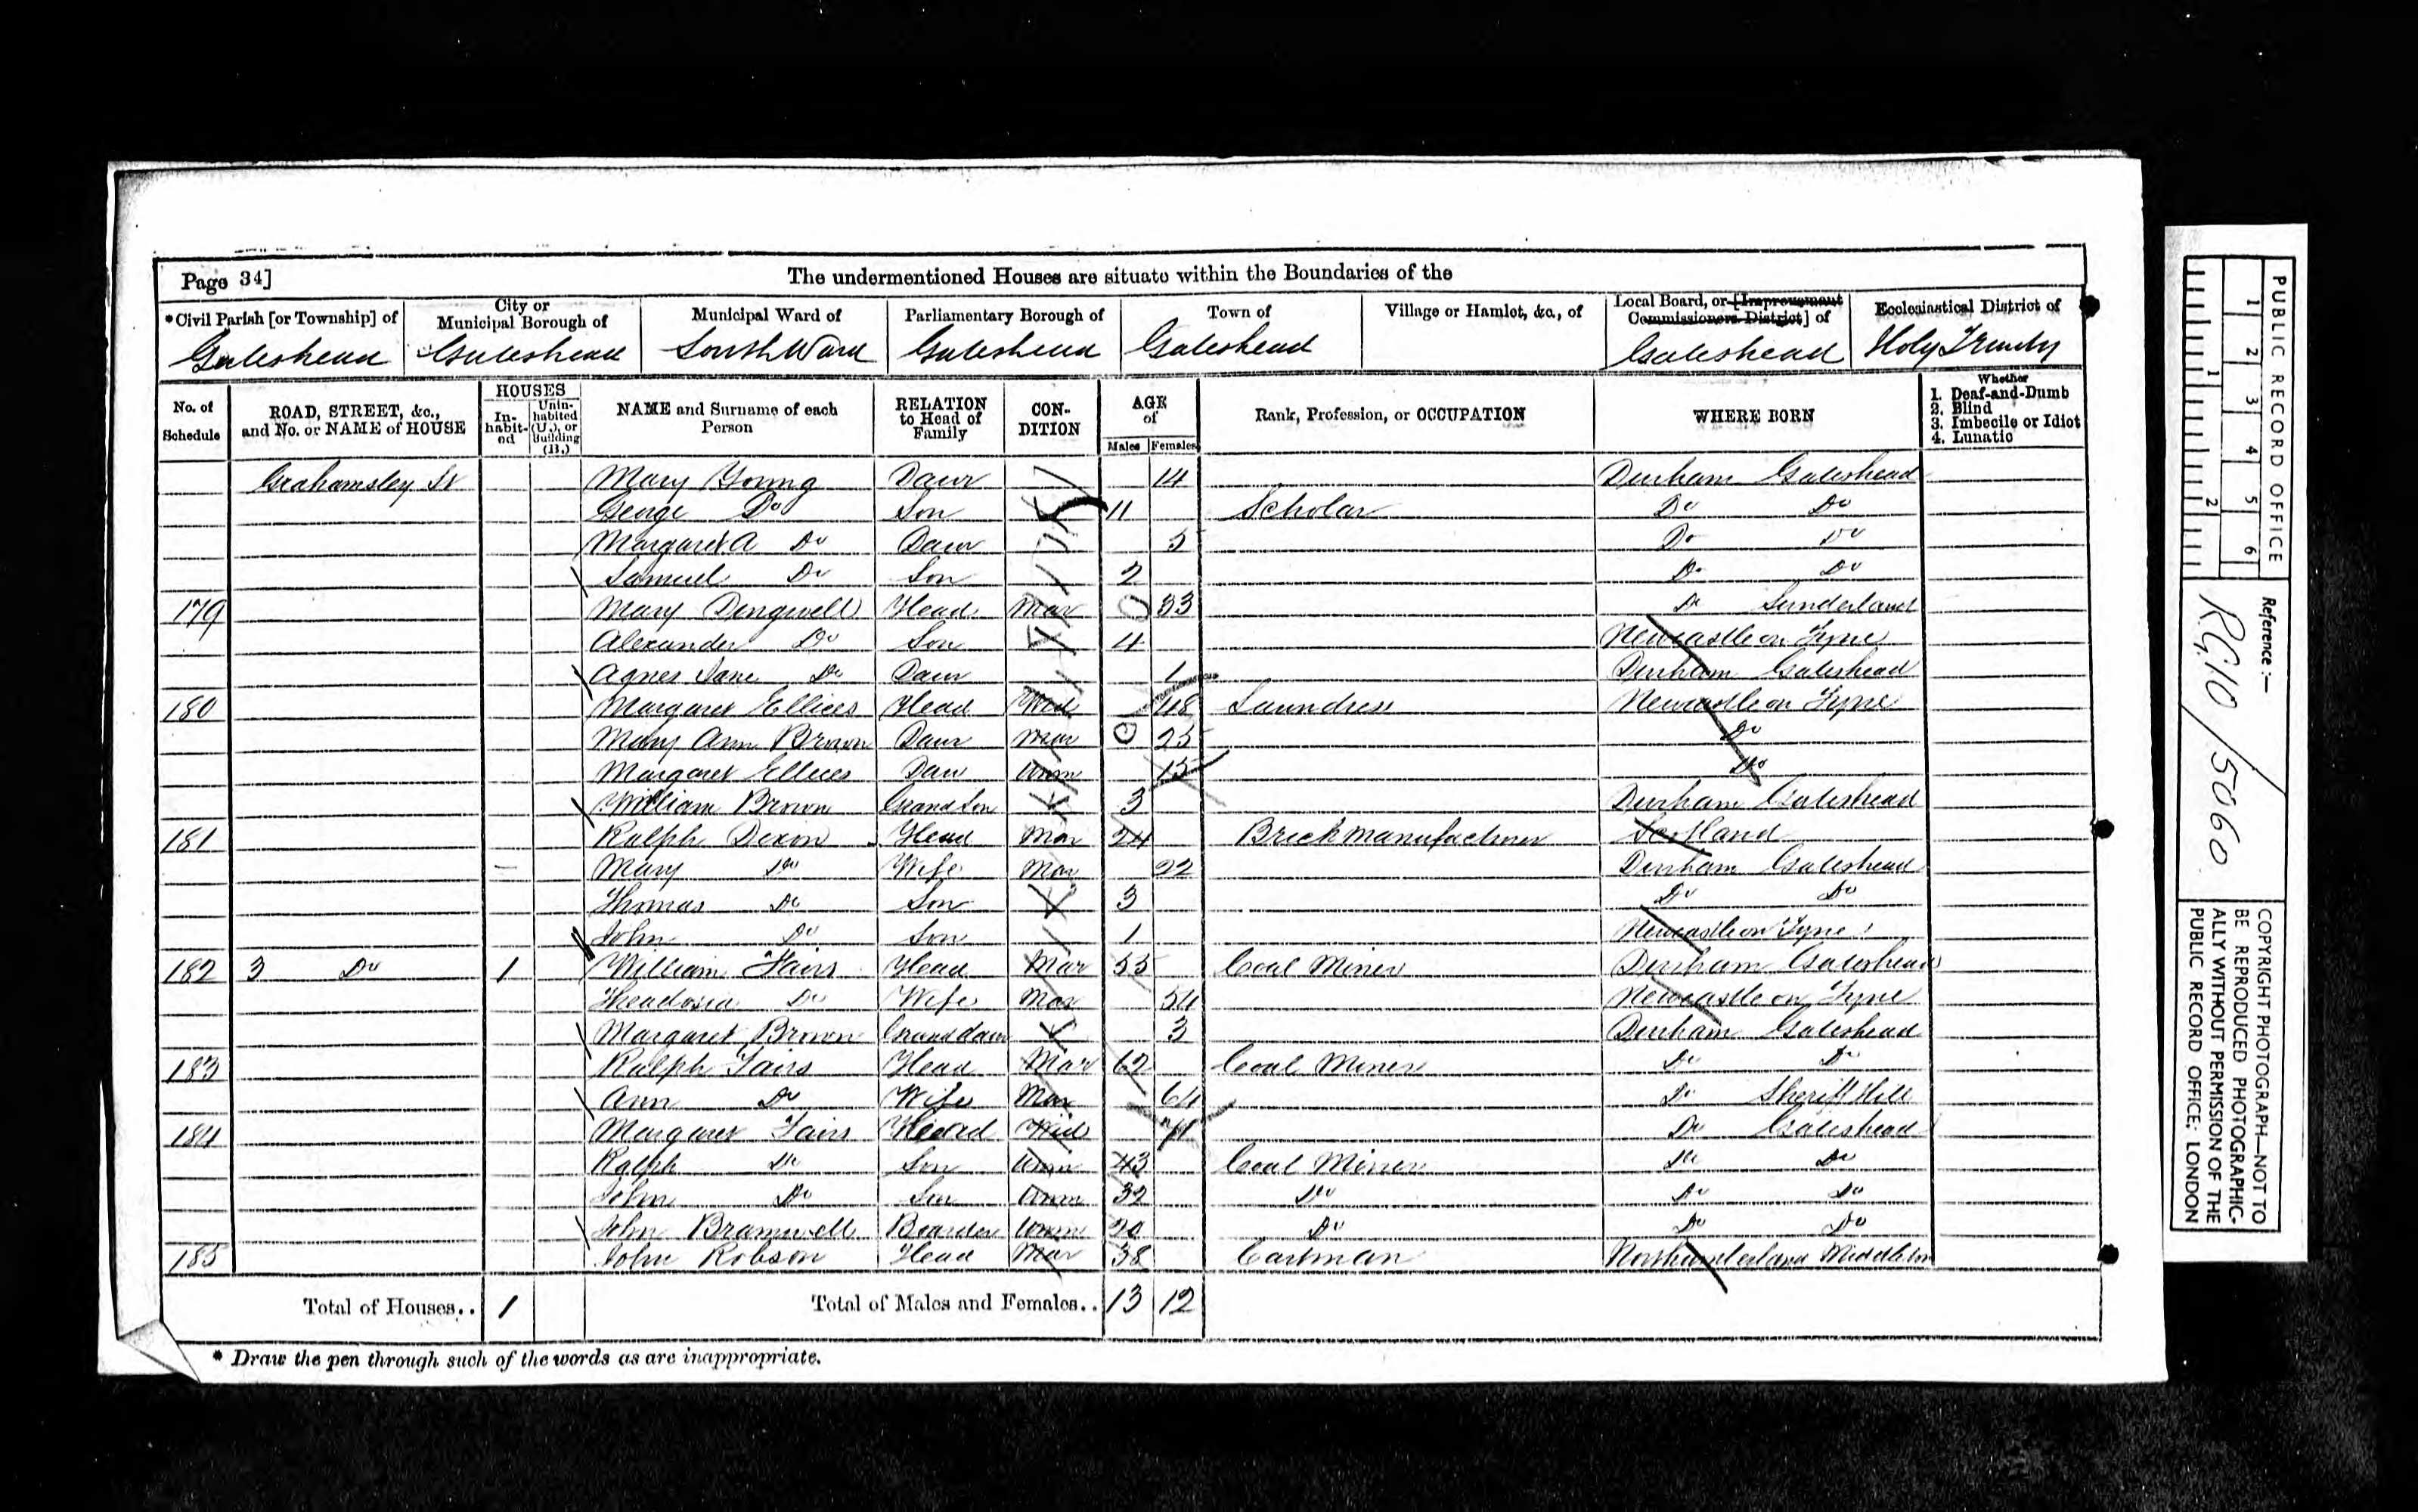 Page 34]
The undermentioned Houses are situate within the Boundaries of the
*Civil Parish [or Township] of
City or Municipal Borough of
Municipal Ward of
Parliamentary Borough of
Town of
Village or Hamlet, &c., of
Local Board, or [Improvement Commissioners District] of
Ecclesiastical District of
Gateshead Gateshead South Ward Gateshead Gateshead Gateshead Holy Trinity
No. of Schedule
ROAD, STREET, &c., and No. or NAME of HOUSE
HOUSES
In-habit-ed
Unin-habited (U.), or Building (B.)
NAME and Surname of each Person
RELATION to Head of Family
CON-DITION
AGE of
Males Females
Rank, Profession, or OCCUPATION
WHERE BORN
Whether
1. Deaf-and-Dumb
2. Blind
3. Imbecile or Idiot
4. Lunatic
Grahamsley St Mary Young Daur 14 Durham Gateshead
George Do Son 11 Scholar Do Do
Margaret A Do Daur 5 Do Do
Samuel Do Son 2 Do Do
179 Mary Dingwell Head Mar 33 Do Sunderland
Alexander Do Son 4 Newcastle on Tyne
Agnes Jane Do Daur 1 Durham Gateshead
180 Margaret Ellices Head Wid 48 Laundress Newcastle on Tyne
Mary Ann Brown Daur Mar 25 Do
Margaret Ellices Daur Unm 15 Do
William Brown Grand Son 3 Durham Gateshead
181 Ralph Dixon Head Mar 24 Brick manufacturer Scotland
Mary Do Wife Mar 22 Durham Gateshead
Thomas Do Son 3 Do Do
John Do Son 1 Newcastle on Tyne
182 3 Do 1 William Fairs Head Mar 55 Coal Miner Durham Gateshead
Theadosia Do Wife Mar 54 Newcastle on Tyne
Margaret Brown Granddaur 3 Durham Gateshead
183 Ralph Fairs Head Mar 62 Coal Miner Do Do
Ann Do Wife Mar 64 Do Sheriff Hill
184 Margaret Fairs Head Wid 71 Do Gateshead
Ralph Do Son Unm 43 Coal Miner Do Do
John Do Son Unm 32 Do Do Do
John Bramwell Boarder Unm 20 Do Do Do
185 John Robson Head Mar 38 Cartman Northumberland Middleton
Total of Houses.. 1 Total of Males and Females.. 13 12
* Draw the pen through such of the words as are inappropriate.
PUBLIC RECORD OFFICE
1 2 3 4 5 6
1 2
Reference :—
RG.10 / 5060
COPYRIGHT PHOTOGRAPH—NOT TO
BE REPRODUCED PHOTOGRAPHIC-
ALLY WITHOUT PERMISSION OF THE
PUBLIC RECORD OFFICE, LONDON